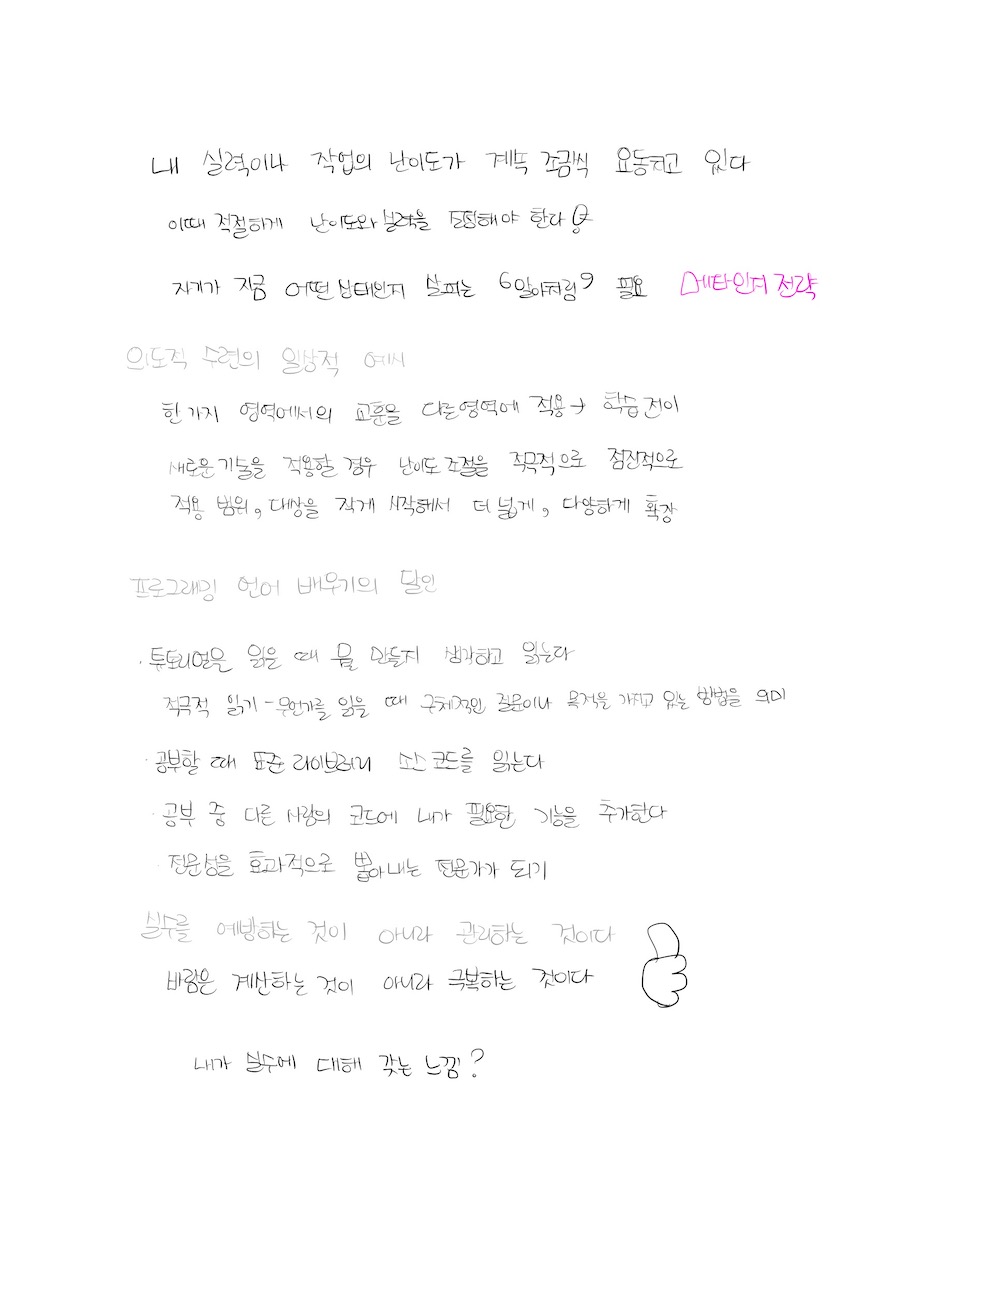 내 실력이나 작업의 난이도가 계속 조금씩 요동치고 있다
이때 적절하게 난이도와 실력을 조정해야 한다
자기가 지금 어떤 상태인지 살피는 '알아차림' 필요 메타인지 전략
의도적 수련의 일상적 예시
한 가지 영역에서의 교훈을 다른 영역에 적용 → 학습 전이
새로운 기술을 적용할 경우 난이도 조절을 적극적으로 점진적으로
적용 범위, 대상을 작게 시작해서 더 넓게, 다양하게 확장
프로그래밍 언어 배우기의 달인
· 튜토리얼을 읽을 때 뭘 만들지 생각하고 읽는다
적극적 읽기 - 무언가를 읽을 때 구체적인 질문이나 목적을 가지고 있는 방법을 의미
· 공부할 때 표준 라이브러리 소스코드를 읽는다
· 공부 중 다른 사람의 코드에 내가 필요한 기능을 추가한다
· 전문성을 효과적으로 뽑아내는 전문가가 되기
실수를 예방하는 것이 아니라 관리하는 것이다
바람은 계산하는 것이 아니라 극복하는 것이다
내가 실수에 대해 갖는 느낌?